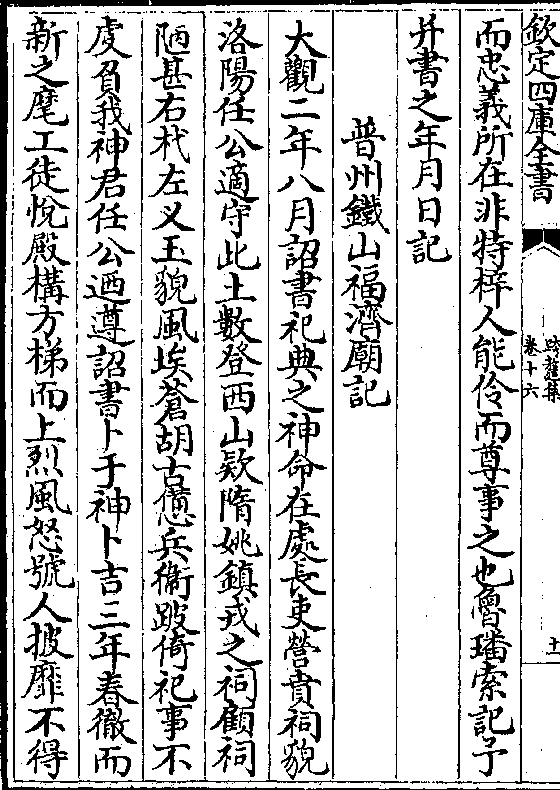 欽定四庫全書
跨鼇集
卷十六
十一
而忠義所在非特梓人能伶而尊事之也魯璠索記予
并書之年月日記
普州鐵山福濟廟記
大觀二年八月詔書祀典之神命在處長吏營賁祠貌
洛陽任公適守此土數登西山欵隋姚鎮戎之祠顧祠
陋甚右杙左义玉貌風埃蒼胡古憊兵衞跛倚祀事不
虔負我神君任公迺遵詔書卜于神卜吉三年春徹而
新之麾工徒悅殿構方梯而上烈風怒號人披靡不得